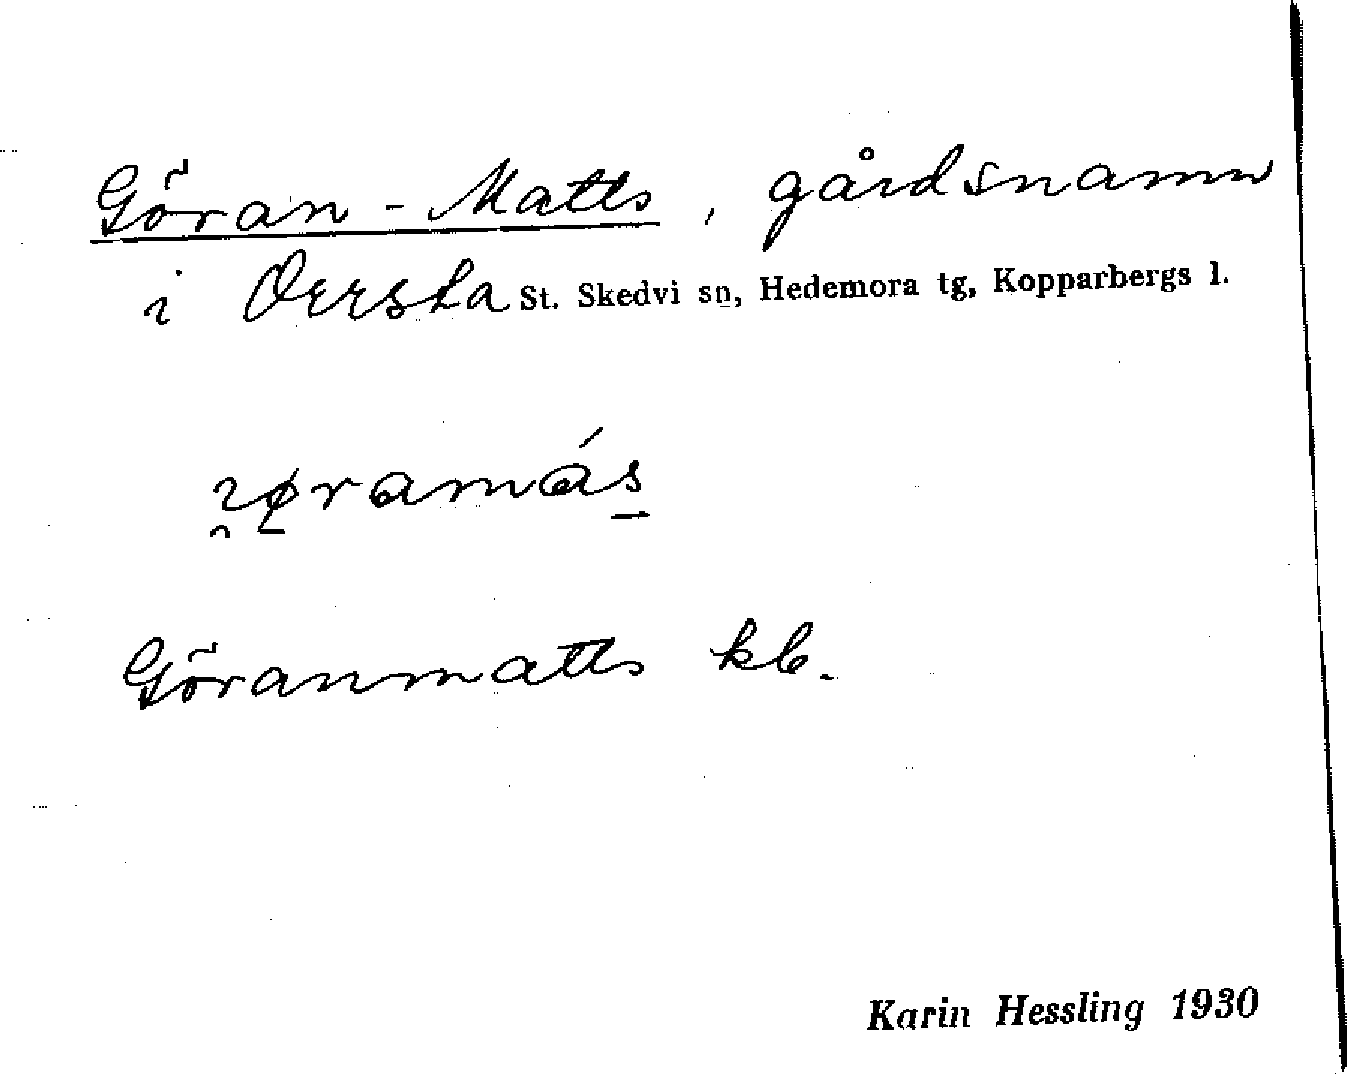 Göran-Matts, gårdsnamn
i Oversta St. Skedvi sn, Hedemora tg, Kopparbergs l.
Göranmatts kb.
Karin Hessling 1930